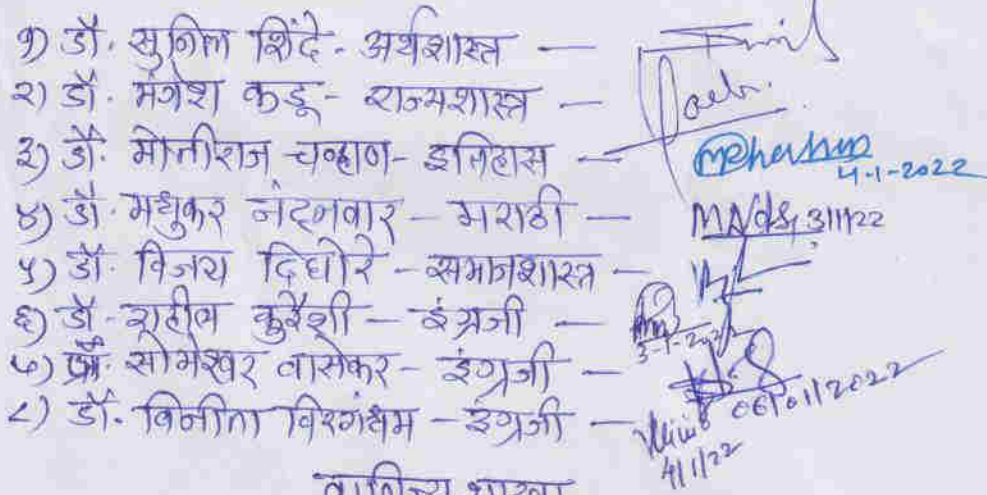 १) डॉ. सुनिल शिंदे - अर्थशास्त्र —
२) डॉ. मंगेश कडू - राज्यशास्त्र —
३) डॉ. मोतीराज चव्हाण - इतिहास — 4-1-2022
४) डॉ. मधुकर नंदनवार - मराठी — 3/1/22
५) डॉ. विजय दिघोरे - समाजशास्त्र —
६) डॉ - राहील कुरैशी - इंग्रजी — 3-1-2022
७) प्रा. सोमेश्वर वासेकर - इंग्रजी — 06/01/2022
८) डॉ. विनीता विरगंधम - इंग्रजी — 4/1/22
वाणिज्य शाखा